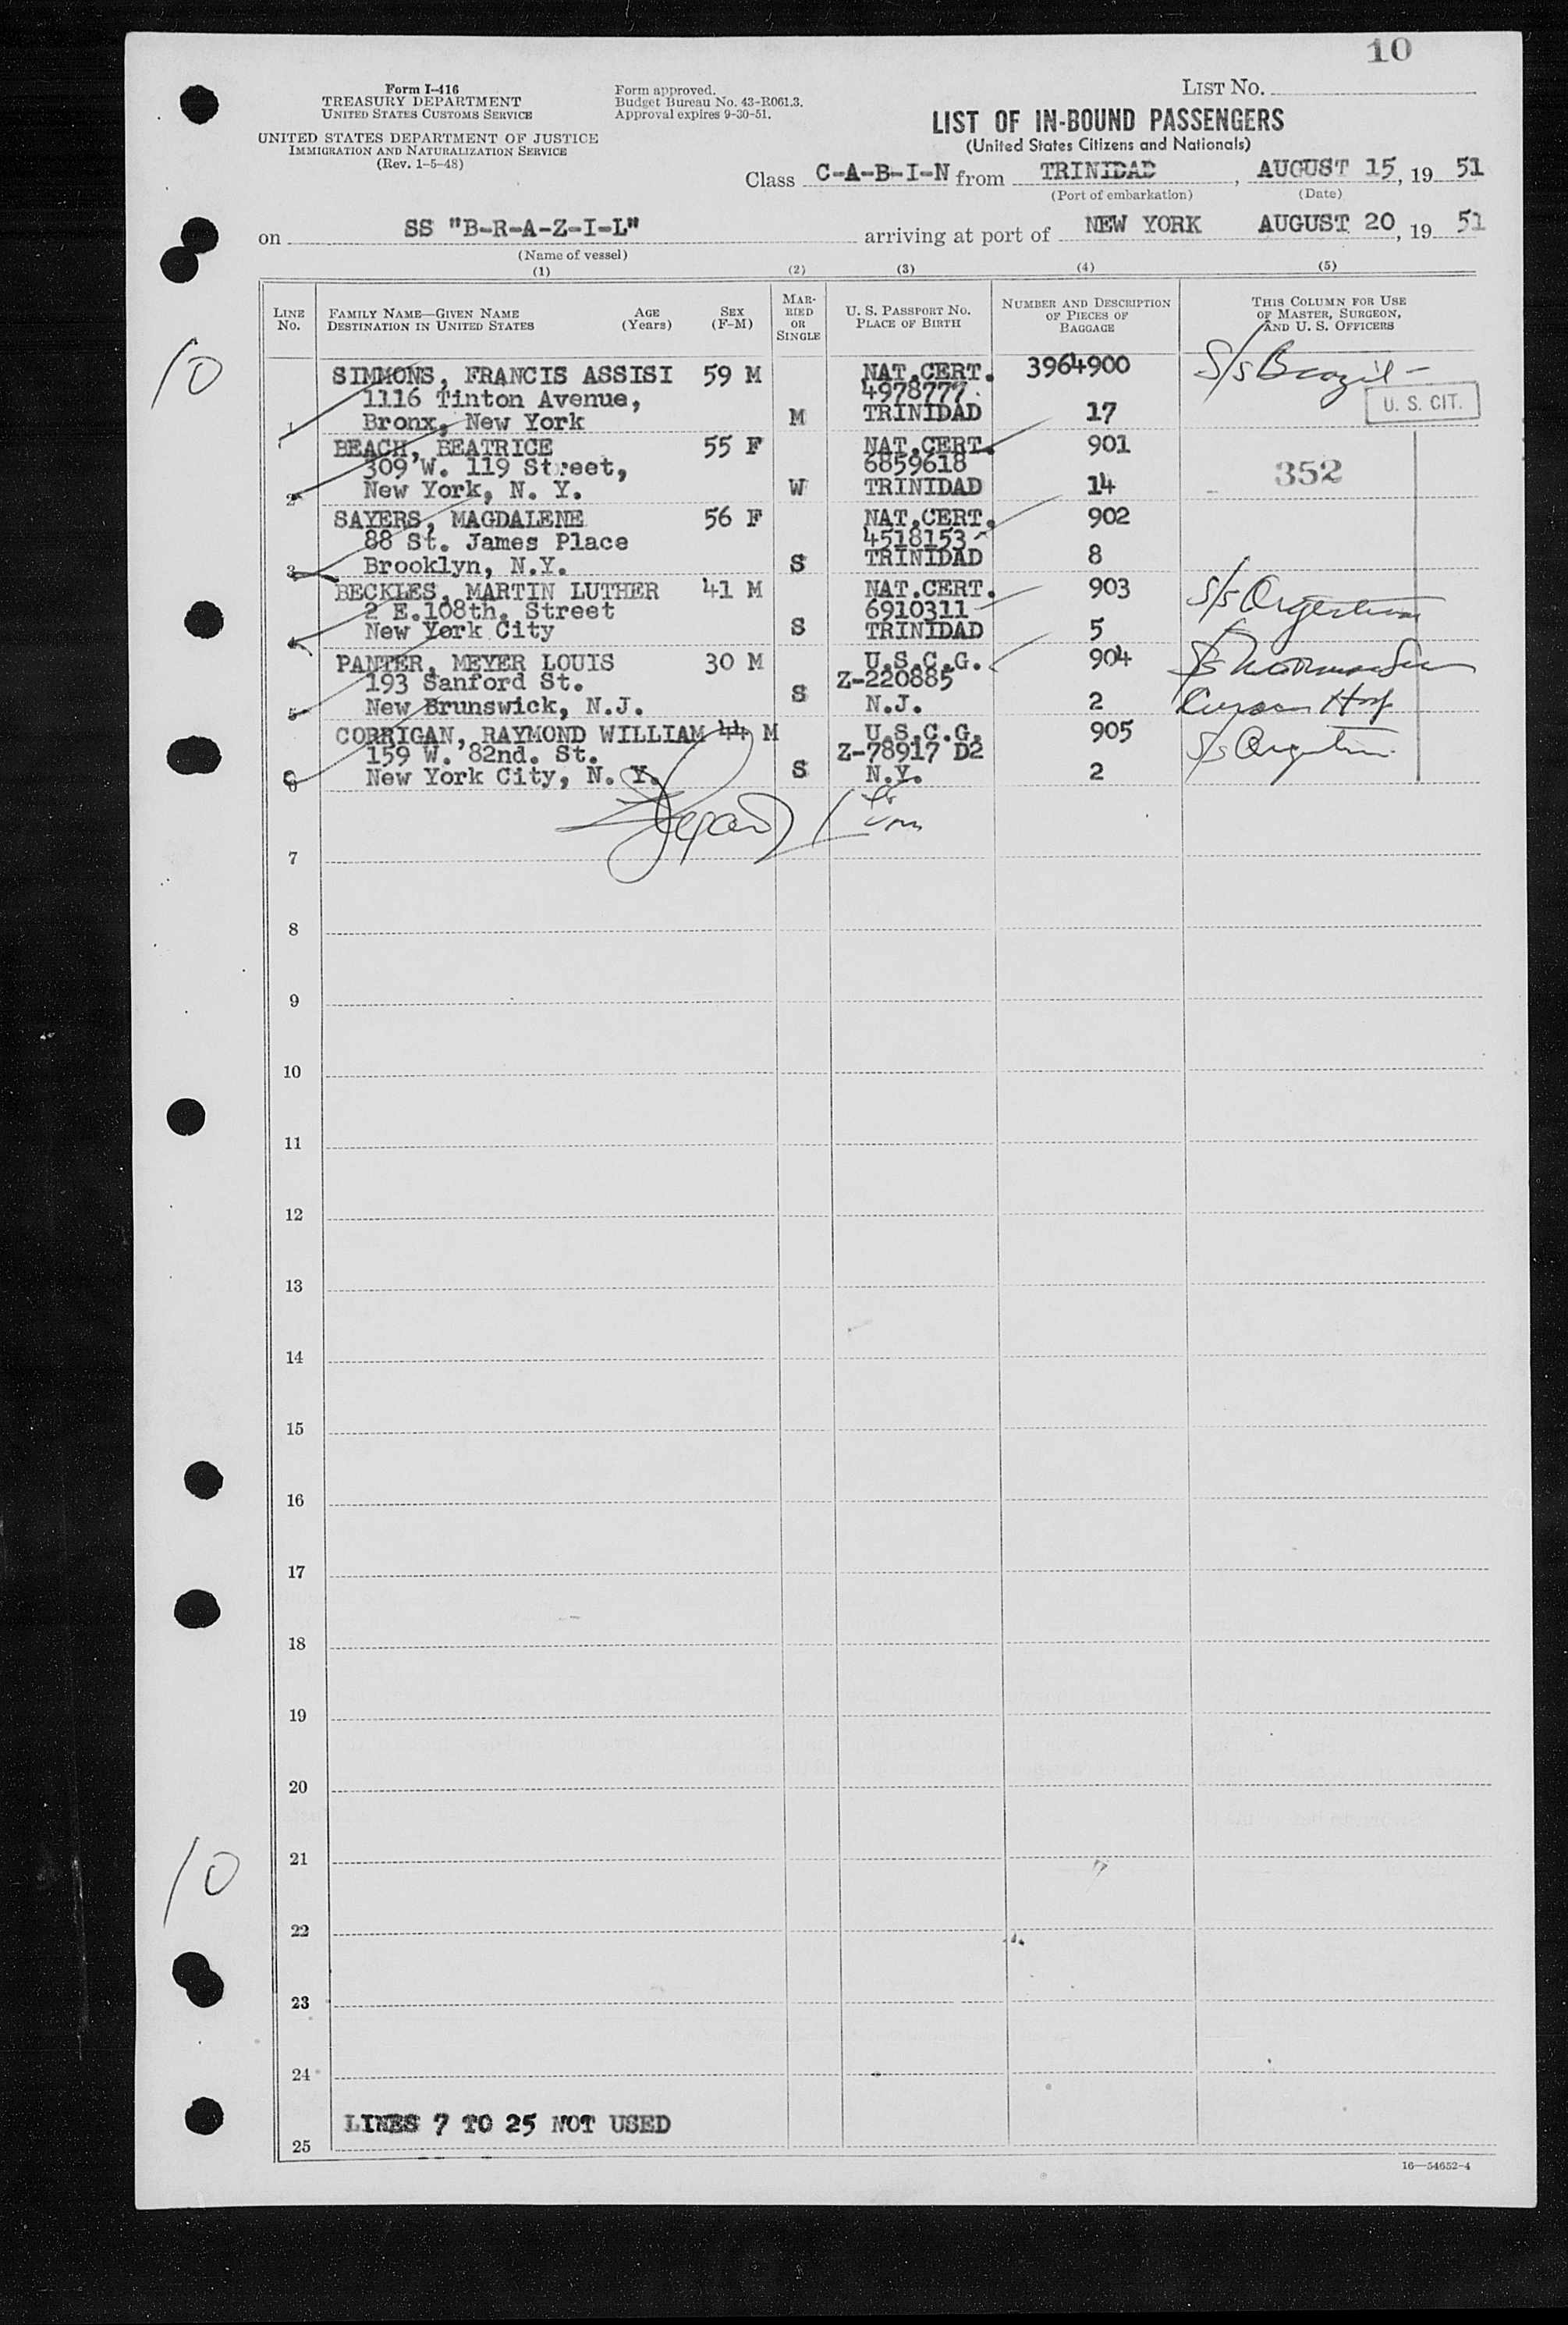 10
Form I-416
TREASURY DEPARTMENT
UNITED STATES CUSTOMS SERVICE
UNITED STATES DEPARTMENT OF JUSTICE
IMMIGRATION AND NATURALIZATION SERVICE
(Rev. 1-5-48)
Form approved.
Budget Bureau No. 43-R061.3.
Approval expires 9-30-51.
LIST NO.
LIST OF IN-BOUND PASSENGERS
(United States Citizens and Nationals)
Class C-A-B-I-N from TRINIDAD, AUGUST 15, 19 51
(Port of embarkation) (Date)
on SS "B-R-A-Z-I-L" arriving at port of NEW YORK AUGUST 20, 19 51
(Name of vessel)
(1) (2) (3) (4) (5)
LINE No.
FAMILY NAME—GIVEN NAME
DESTINATION IN UNITED STATES
AGE (Years)
SEX (F-M)
MARRIED OR SINGLE
U. S. PASSPORT NO.
PLACE OF BIRTH
NUMBER AND DESCRIPTION OF PIECES OF BAGGAGE
THIS COLUMN FOR USE OF MASTER, SURGEON, AND U. S. OFFICERS
10
SIMMONS, FRANCIS ASSISI 59 M NAT.CERT. 3964900 S/s Brazil -
1116 Tinton Avenue, 4978777 U. S. CIT.
1 Bronx, New York M TRINIDAD 17
BEACH, BEATRICE 55 F NAT.CERT. 901
309 W. 119 Street, 6859618 352
2 New York, N. Y. W TRINIDAD 14
SAYERS, MAGDALENE 56 F NAT.CERT. 902
88 St. James Place 4518153
3 Brooklyn, N.Y. S TRINIDAD 8
BECKLES, MARTIN LUTHER 41 M NAT.CERT. 903 S/s Argentina
2 E.108th. Street 6910311
4 New York City S TRINIDAD 5
PANTER, MEYER LOUIS 30 M U.S.C.G. 904 S/s
193 Sanford St. Z-220885
5 New Brunswick, N.J. S N.J. 2
CORRIGAN, RAYMOND WILLIAM 44 M U.S.C.G. 905 S/s Argentina
159 W. 82nd. St. Z-78917 D2
6 New York City, N. Y. S N.Y. 2
7
8
9
10
11
12
13
14
15
16
17
18
19
20
21
10
22
23
24
LINES 7 TO 25 NOT USED
25
16—54652-4